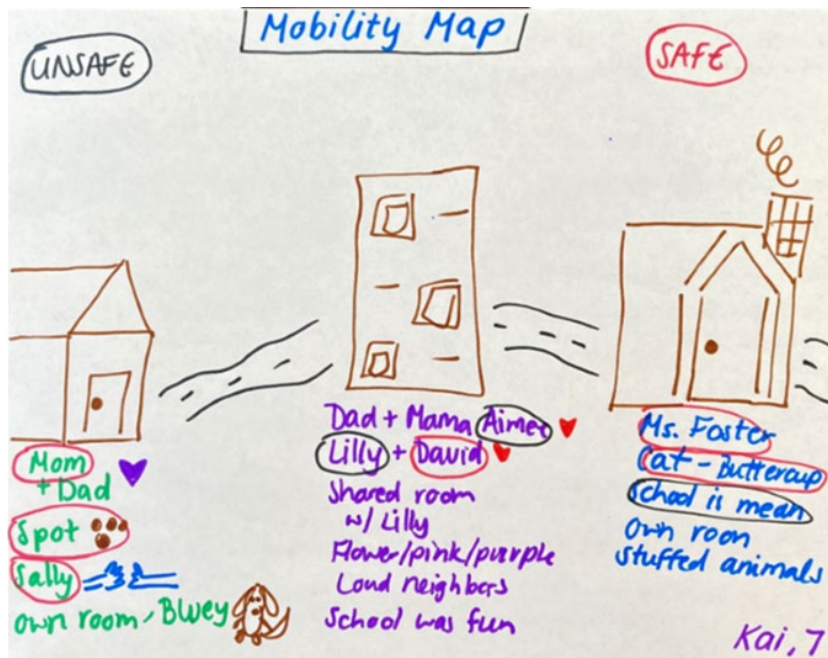 Mobility Map
UNSAFE
SAFE
Mom
+ Dad
Spot
Sally
own room - Bluey
Dad + Mama Aimee
Lilly + David
Shared room
w/ Lilly
Flower/pink/purple
Loud neighbors
School was fun
Ms. Foster
Cat - Buttercup
School is mean
own room
stuffed animals
Kai, 7